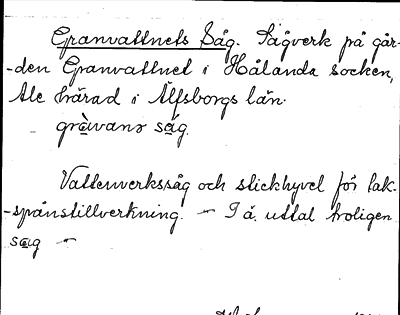 Granvattnets Såg. Sågverk på går-
-den Granvattnet i Hålanda socken,
Ale härad i Älfsborgs län.
gràvanɘ såg.
Vattenverkssåg och stickhyvel för tak-
-spånstillverkning. – I ä. uttal troligen
såg –